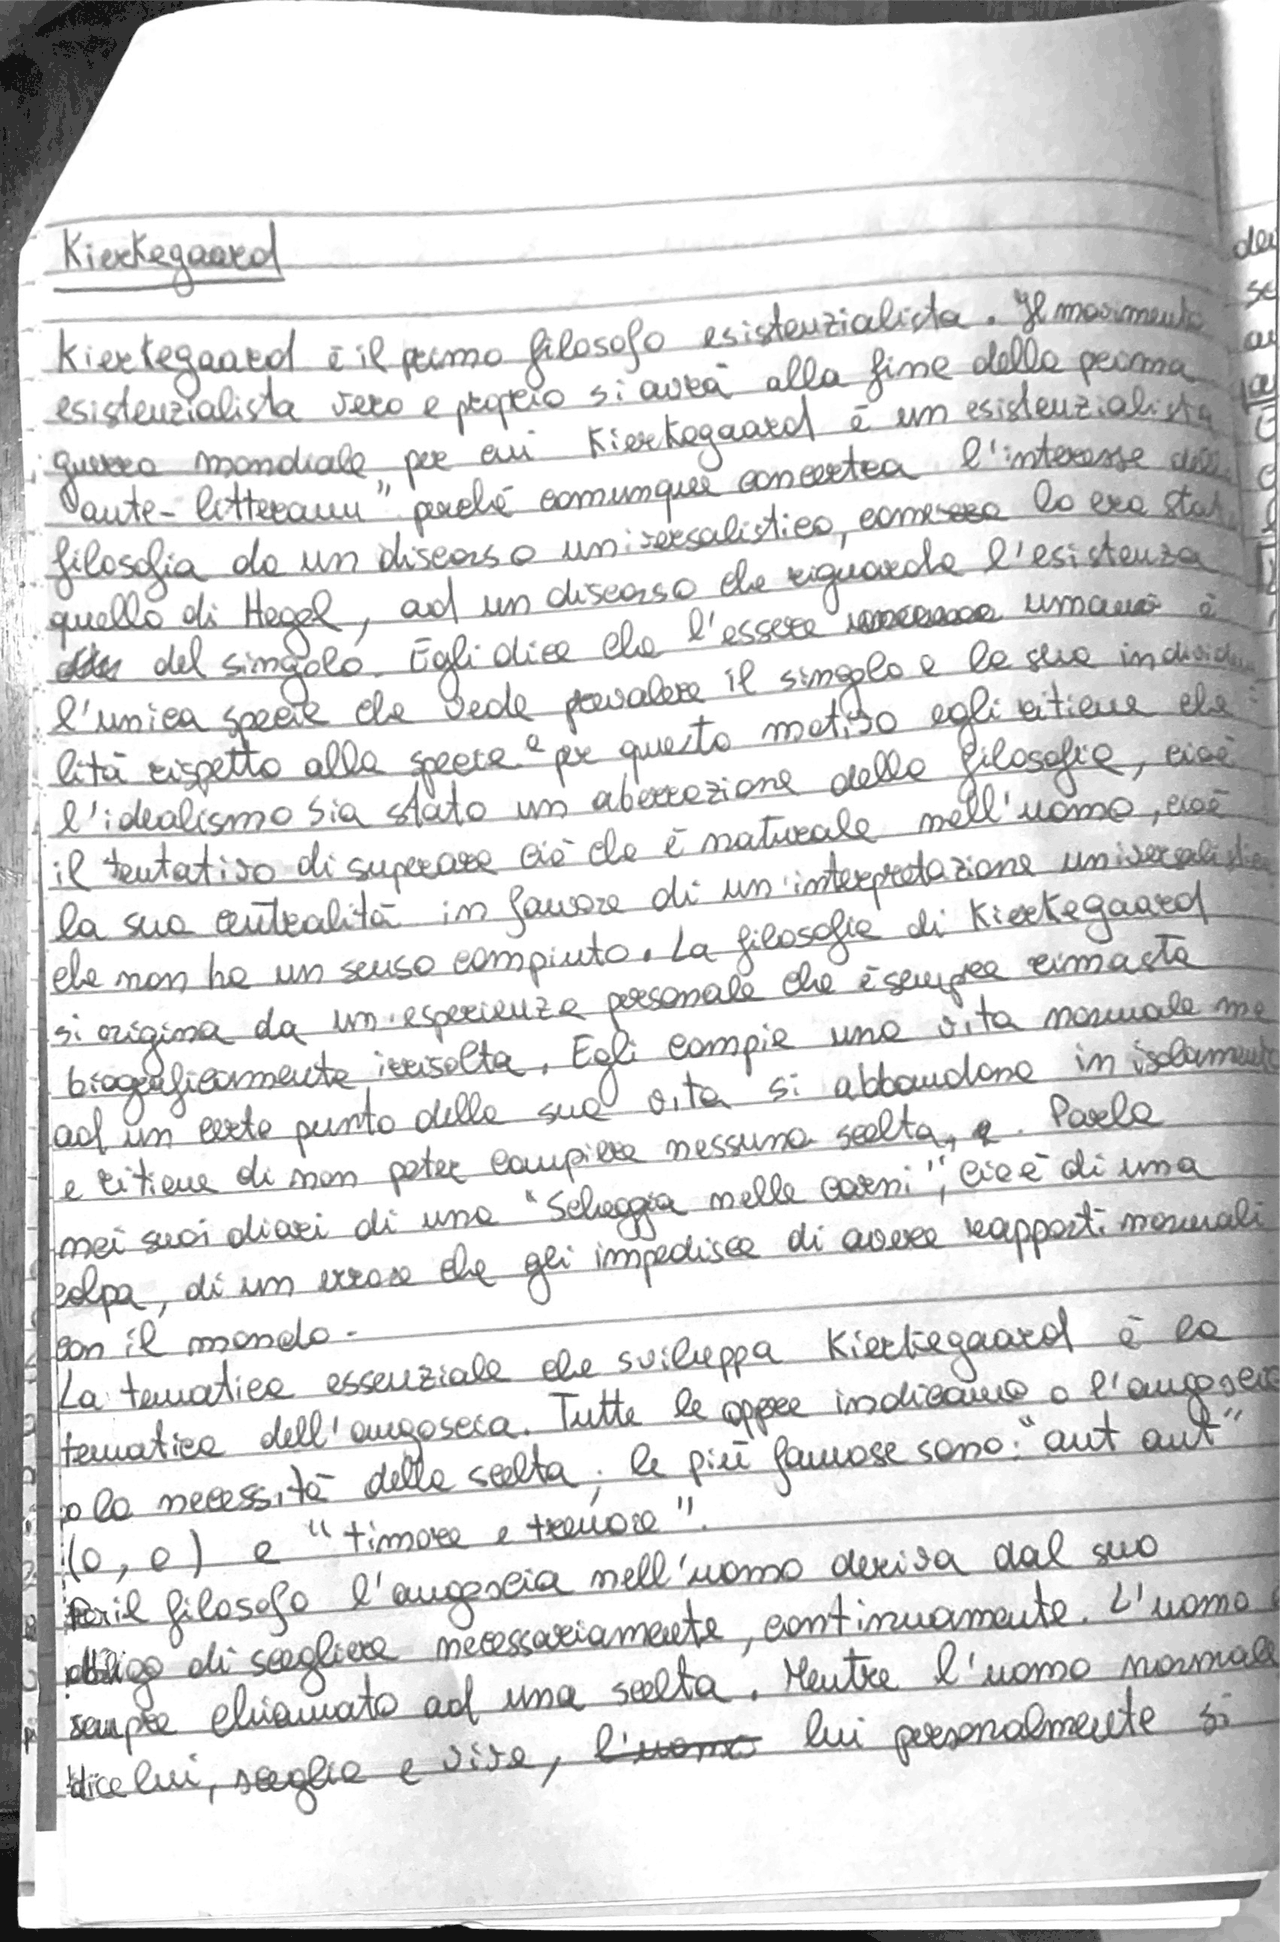 Kierkegaard
Kierkegaard è il primo filosofo esistenzialista. Il movimento
esistenzialista vero e proprio si avrà alla fine della prima
guerra mondiale per cui Kierkegaard è un esistenzialista
"ante-litteram" perché comunque concertra l'interesse della
filosofia da un discorso universalistico, come lo era stato
quello di Hegel, ad un discorso che riguarda l'esistenza
del singolo. Egli dice che l'essere umano è
l'unica specie che vede prevalere il singolo e la sua individua
lità rispetto alla specie e per questo motivo egli ritiene che
l'idealismo sia stato un aberrazione della filosofia, cioè
il tentativo di superare ciò che è naturale nell'uomo, cioè
la sua centralità in favore di un'interpretazione universalistica
che non ha un senso compiuto. La filosofia di Kierkegaard
si origina da un'esperienza personale che è sempre rimasta
biograficamente irrisolta. Egli compie una vita normale ma
ad un certo punto della sua vita si abbandona in isolamento
e ritiene di non poter compiere nessuna scelta. Parla
nei suoi diari di una "Scheggia nelle carni", cioè di una
colpa, di un errore che gli impedisce di avere rapporti normali
con il mondo.
La tematica essenziale che sviluppa Kierkegaard è la
tematica dell'angoscia. Tutte le opere indicano o l'angoscia
o la necessità della scelta; le più famose sono: "aut aut"
(o, o) e "timore e tremore".
Per il filosofo l'angoscia nell'uomo deriva dal suo
obbligo di scegliere necessariamente, continuamente. L'uomo è
sempre chiamato ad una scelta. Mentre l'uomo normale
dice lui, sceglie e vive, l'uomo lui personalmente si